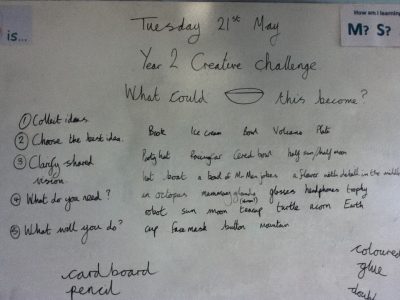 is...
How am I learning
M? S?
Tuesday 21st May
Year 2 Creative challenge
What could this become?
① Collect ideas
② Choose the best idea.
③ Clarify shared vision.
④ What do you need?
⑤ What will you do?
Book Ice cream Bowl Volcano Plate
Party hat Cereal bowl half sun/half moon
hat boat a bowl of Mr Men jokes a flower with detail in the middle
an octopus glasses headphones trophy
robot sun moon teacup turtle acorn Earth
cup face mask button mountain
cardboard
pencil
coloured
glue